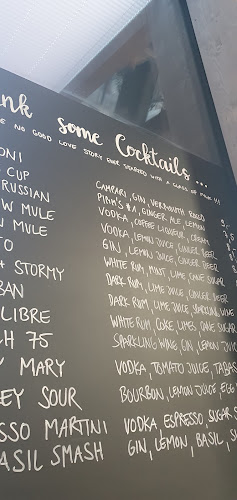 nk some Cocktails ...
NO GOOD LOVE STORY EVER STARTED WITH A GLASS OF MILK !!!
ONI CAMPARI, GIN, VERMOUTH ROSSO
CUP PIMM'S #1, GINGER ALE, LEMON
RUSSIAN VODKA, COFFEE LIQUEUR, CREAM
W MULE VODKA, LEMON JUICE, GINGER BEER
N MULE GIN, LEMON JUICE, GINGER BEER
TO WHITE RUM, MINT, LIME, CANE SUGAR
+ STORMY DARK RUM, LIME JUICE, GINGER BEER
BAN DARK RUM, LIME JUICE, SPARKLING WINE
LIBRE WHITE RUM, COKE, LIMES, CANE SUGAR
H 75 SPARKLING WINE, GIN, LEMON JUICE
Y MARY VODKA, TOMATO JUICE, TABAS
EY SOUR BOURBON, LEMON JUICE, EGG W
SSO MARTINI VODKA, ESPRESSO, SUGAR S
ASIL SMASH GIN, LEMON, BASIL, SU